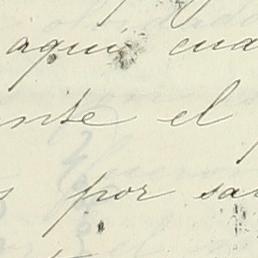 aquí cua
nte el
s por sa